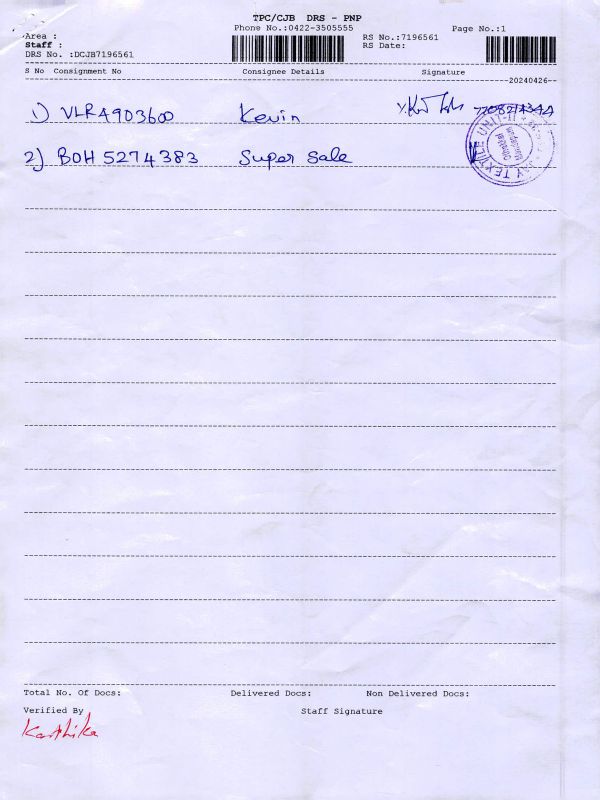 TPC/CJB DRS - PNP
Phone No.:0422-3505555
Page No.:1
Area :
Staff :
DRS No. :DCJB7196561
RS No.:7196561
RS Date:
S No Consignment No Consignee Details Signature
20240426
1) VLRA903600 Kevin
2) BOH 5274383 Super Sale
TEXTILE UNIT-II
Total No. Of Docs: Delivered Docs: Non Delivered Docs:
Verified By Staff Signature
Karthika